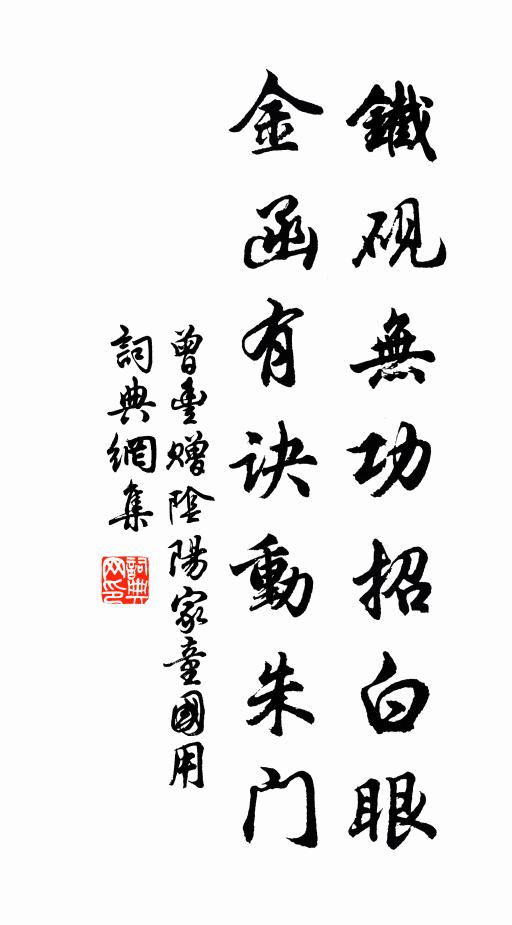 鐵硯無功招白眼
金函有诀動朱门
曾豐贈陰陽家童國用
詞典網集
詞典网印